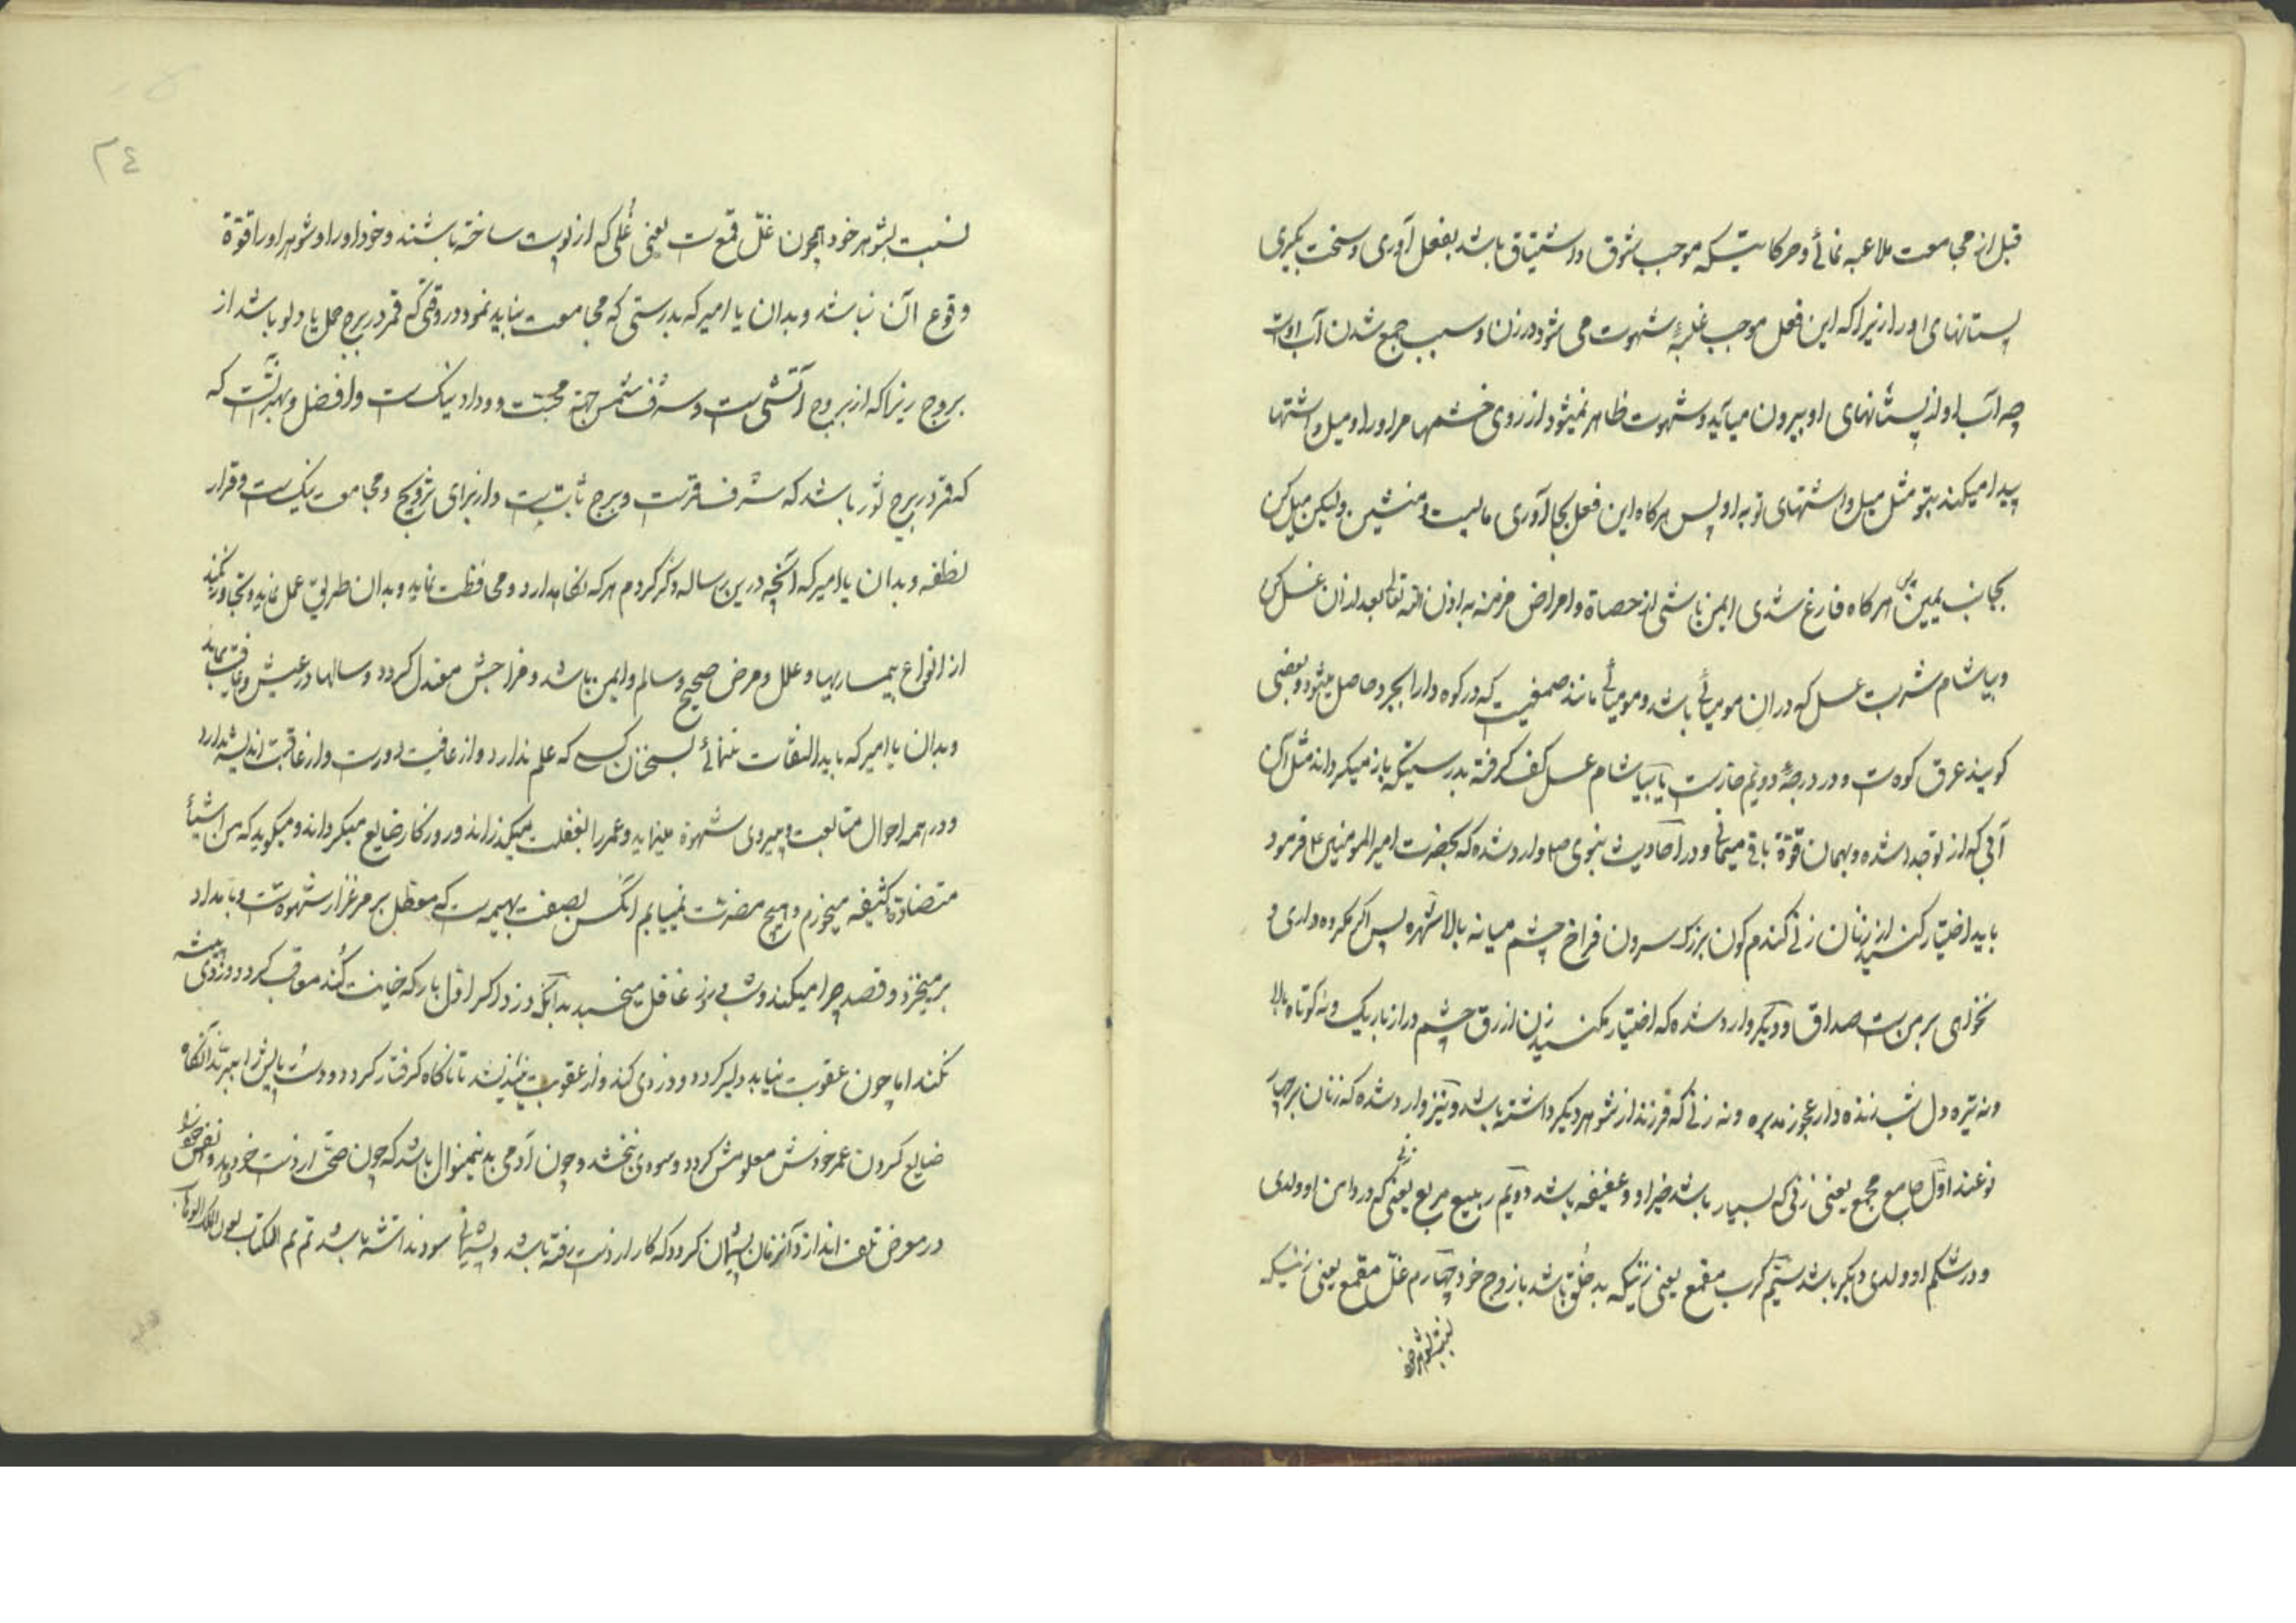 قبل از مجامعت ملاعبه نمائی و حرکاتیکه موجب شوق و اشتیاق باشد بفعل آوری و سخت بگیری
پستانهای او را زیرا که این فعل موجب غلبهٔ شهوت می شود در زن و سبب جمع شدن آب اوست
چه آب او از پستانهای او بیرون میآید و شهوت ظاهر میشود از روی چشمها مر او را و میل و اشتها
پیدا میکند بتو مثل میل و اشتهای تو به او پس هرکاه این فعل بجا آوری مایست و منشین ولیکن میل کن
بجانب یمین پس هرکاه فارغ شدی ایمن باشی از حصاة و امراض مزمنه به اذن الله تعالی بعد از ان غسل کن
و بیاشام شربت عسل که در ان مومیائی باشد و مومیائی مانند صمغیست که در کوه دارابجرد حاصل میشود و بعضی
کویند عرق کوه است و در درجهٔ دویم حارست یا بیاشام عسل کف کرفته بدرستیکه باز میکرداند مثل آن
آبی که از تو جدا شده و بهمان قوّة باقی میمانی و در احادیث نبوی ص وارد شده که بحضرت امیرالمومنین ع فرمود
باید اختیار کنید از زنان زنی کندم کون بزرک سرون فراخ چشم میانه بالا شهره پس اکر مکروه داری و
نخواهی بر من است صداق او و دیکر وارد شده که اختیار مکنید زن ازرق چشم دراز باریک و نه کوتاه بالا
و نه تیره دل شب زنده دار عجوز مدبره و نه زنی که فرزند از شوهر دیکر داشته باشد و نیز وارد شده که زنان بر چهار
نوعند اوّل جامع مجمع یعنی زنی که بسیار باشد خیر او و عفیفه باشد دویم ربیع مربع یعنی زنی که در دامن او ولدی
و در شکم او ولدی دیکر باشد سیّم کرب مقمع یعنی زنیکه بد خُلق باشد با زوج خود چهارم غلّ مقمع یعنی زنیکه
نسبت بشوهر خود
٢٤
نسبت بشوهر خود همچون غلّ قمع است یعنی غُلی که از پوست ساخته باشند و خود او را و شوهر او را قوّة
وقوع آن نباشد و بدان یا امیر که بدرستی که مجامعت نباید نمود در وقتی که قمر در برج حمل یا دلو باشد از
بروج زیرا که از بروج آتشی است و شرف شمس جهة محبّت و وداد نیک است و افضل و بهتر آنست که
که قمر در برج ثور باشد که شرف قمرست و برج ثابتست و از برای تزویج و مجامعت نیک است و قرار
نطفه و بدان یا امیر که آنچه درین رساله ذکر کردم هر که نکاهدارد و محافظت نماید و بدان طریق عمل نماید و تجاوز نکند
از انواع بیماریها و علل و مرض صحیح و سالم و ایمن باشد و مزاجش معتدل کردد و سالها در عیش و عافیت بماند
و بدان یا امیر که باید التفات ننمائی بسخنان کسی که علم ندارد و از عافیت دورست و از عاقبت اندیشه ندارد
و در همه احوال متابعت و پیروی شهوة مینماید و عمر را بغفلت میکذراند و روزکار ضایع میکرداند و میکوید که من اشیاء
متضادّهٔ کثیفه میخورم و هیچ مضرّت نمییابم آنکس بصفت بهیمه است که معطل بر مرغزار شهوتست و بامداد
بر میخیزد و قصد چرا میکند و شب بی روز غافل میخسبد بدانکه دزد اکر اوّل بار که خیانت کُند معاقب کردد دزدی پیشه
نکند اما چون عقوبت نیابد دلیر کردد و دزدی کند و از عقوبت نیندیشد تا ناکاه کرفتار کردد و دست و پایش را ببرند آنکاه
ضایع کردن عمر خودش معلومش کردد و سودی نبخشد و چون آدمی بدینمنوال باشد که چون صحّت از دست خود بدهد و نفس خود را
در معرض تلف اندازد آنزمان پشیمان کردد که کار از دست رفته باشد و پشیمانی سود نداشته باشد تمّ تم الکتاب بعون الملک الوهاب